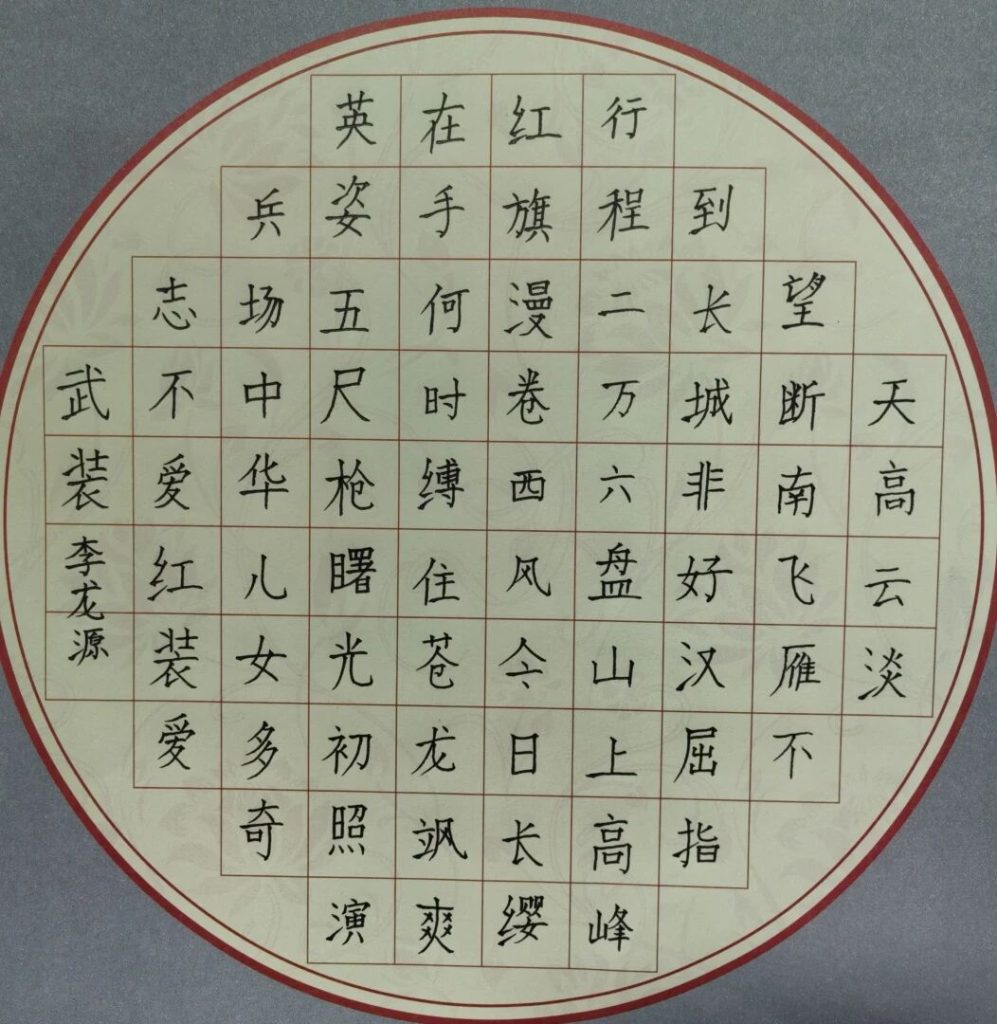 天高云淡
望断南飞雁不
到长城非好汉屈指
行程二万六盘山上高峰
红旗漫卷西风今日长缨
在手何时缚住苍龙飒爽
英姿五尺枪曙光初照演
兵场中华儿女多奇
志不爱红装爱
武装
李龙源